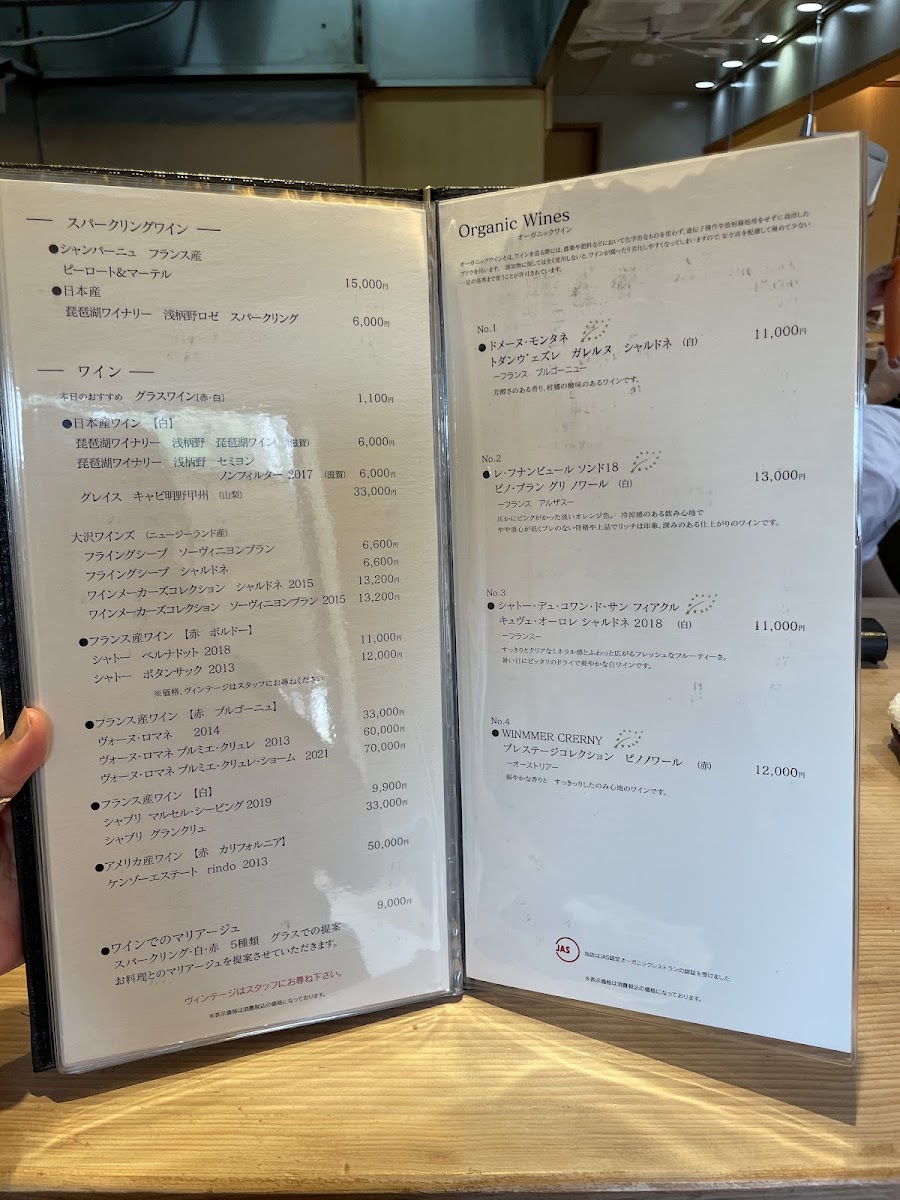 スパークリングワイン
●シャンパーニュ フランス産
ピーロート&マーテル 15,000円
●日本産
琵琶湖ワイナリー 浅柄野ロゼ スパークリング 6,000円
ワイン
本日のおすすめ グラスワイン[赤・白] 1,100円
●日本産ワイン 【白】
琵琶湖ワイナリー 浅柄野 琵琶湖ワイン (滋賀) 6,000円
琵琶湖ワイナリー 浅柄野 セミヨン
ノンフィルター 2017 (滋賀) 6,000円
グレイス キャビ明野甲州 (山梨) 33,000円
大沢ワインズ (ニュージーランド産)
フライングシープ ソーヴィニヨンブラン 6,600円
フライングシープ シャルドネ 6,600円
ワインメーカーズコレクション シャルドネ 2015 13,200円
ワインメーカーズコレクション ソーヴィニヨンブラン 2015 13,200円
●フランス産ワイン 【赤 ボルドー】
シャトー ベルナドット 2018 11,000円
シャトー ポタンサック 2013 12,000円
※価格、ヴィンテージはスタッフにお尋ねください
●フランス産ワイン 【赤 ブルゴーニュ】
ヴォーヌ・ロマネ 2014 33,000円
ヴォーヌ・ロマネ プルミエ・クリュレ 2013 60,000円
ヴォーヌ・ロマネ プルミエ・クリュレ・ショーム 2021 70,000円
●フランス産ワイン 【白】
シャブリ マルセル・シービング 2019 9,900円
シャブリ グランクリュ 33,000円
●アメリカ産ワイン 【赤 カリフォルニア】
ケンゾーエステート rindo 2013 50,000円
●ワインでのマリアージュ 9,000円
スパークリング・白・赤 5種類 グラスでの提案
お料理とのマリアージュを提案させていただきます。
ヴィンテージはスタッフにお尋ね下さい。
※表示価格は消費税込の価格になっております。
Organic Wines
オーガニックワイン
オーガニックワインとは、ワインを造る際には、農薬や肥料などにおいて化学的なものを使わず、遺伝子操作や放射線処理をせずに栽培した
ブドウを用います。 添加物に関しては全く使用しないと、ワインが腐ったり劣化しやすくなってしまいますので、安全面を配慮して極めて少ない
一定の基準まで使うことが許可されています。
No.1
●ドメーヌ・モンタネ
トダンヴェズレ ガレルヌ シャルドネ (白) 11,000円
―フランス ブルゴーニュ―
芳醇さのある香り、柑橘の酸味のあるワインです。
No.2
●レ・フナンビュール ソンド18
ピノ・ブラン グリ ノワール (白) 13,000円
―フランス アルザス―
仄かにピンクがかった淡いオレンジ色。 冷涼感のある飲み心地で
やや重心が低くブレのない骨格や上品でリッチは印象、深みのある仕上がりのワインです。
No.3
●シャトー・デュ・コワン・ド・サン フィアクル
キュヴェ・オーロレ シャルドネ 2018 (白) 11,000円
―フランス―
すっきりとクリアなミネラル感とふわっと広がるフレッシュなフルーティーさ。
暑い日にピッタリのドライで爽やかな白ワインです。
No.4
●WINMMER CRERNY
プレステージコレクション ピノノワール (赤) 12,000円
―オーストリアー
穏やかな香りと すっきっりしたのみ心地のワインです。
JAS 当店はJAS認定オーガニックレストランの認証を受けました
※表示価格は消費税込の価格になっております。